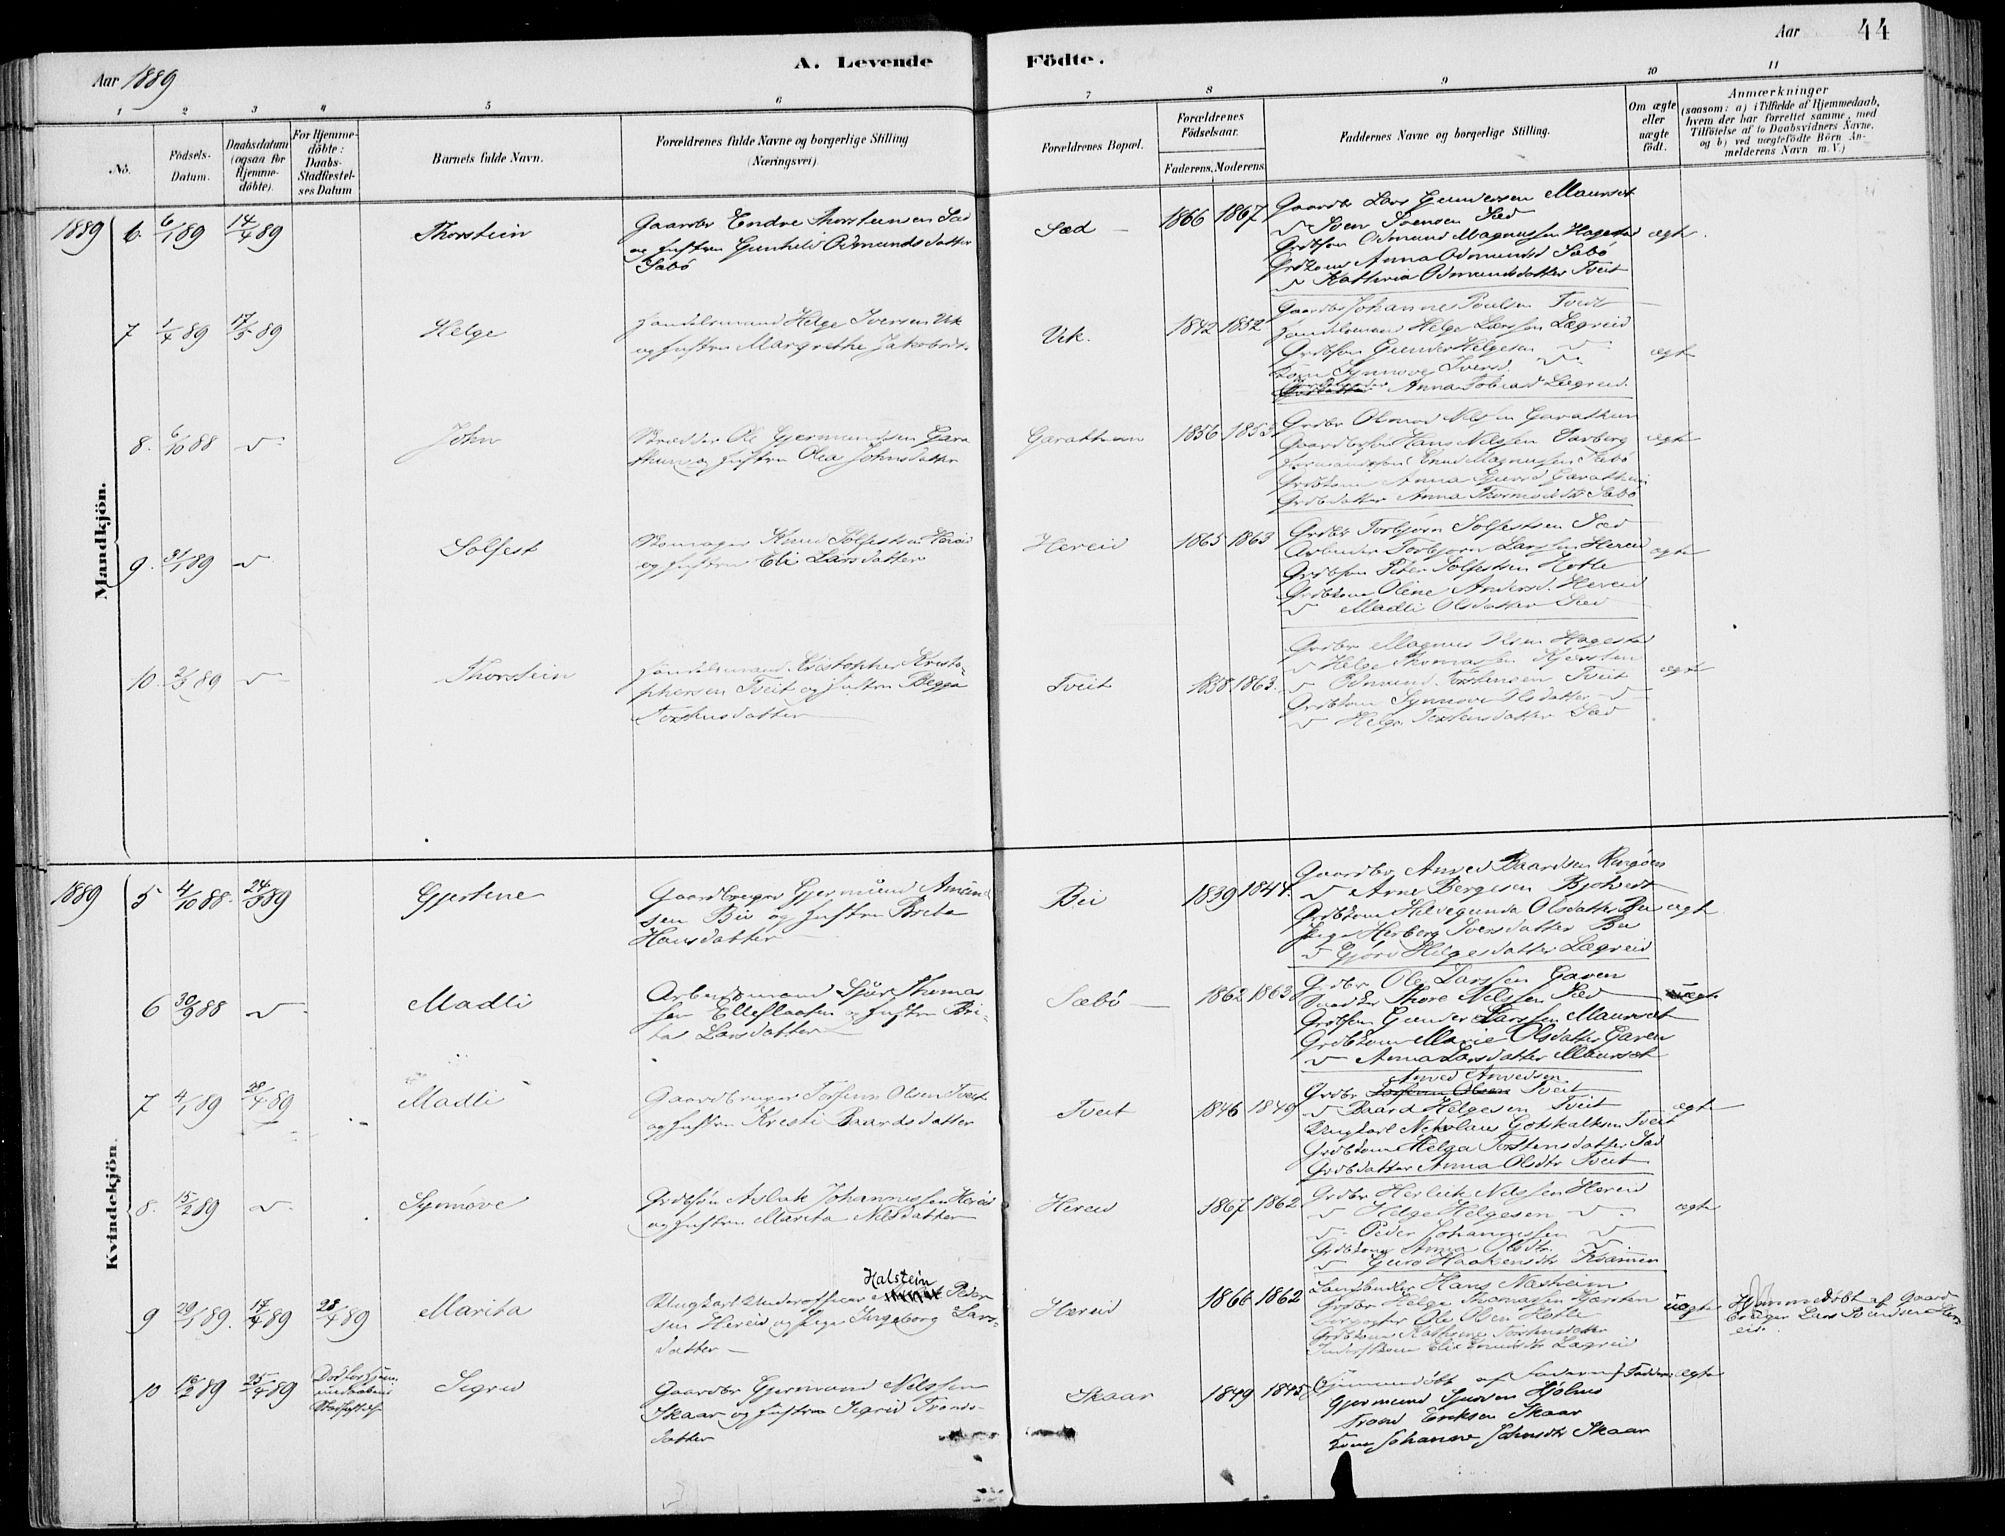 Aar 1889
A. Levende
Födte.
Aar
44
1 2 3 4 5 6 7 8 9 10 11
No.
Födsels-
Datum.
Daabsdatum
(ogsaa for
Hjemme-
döbte).
For Hjemme-
döbte:
Daabs-
Stadfæstel-
ses Datum
Barnets fulde Navn.
Forældrenes fulde Navne og borgerlige Stilling
(Næringsvei).
Forældrenes Bopæl.
Forældrenes
Födselsaar.
Faderens. Moderens.
Faddernes Navne og borgerlige Stilling.
Om ægte
eller
uægte
födt.
Anmærkninger
(saasom: a) i Tilfælde af Hjemmedaab,
hvem der har forrettet samme, med
Tilföielse af to Daabsvidners Navne,
og b) ved uægtefödte Börn An-
melderens Navn m. V.)
Mandkjön.
1889 6 6/1 89 14/4 89
Thorstein
Gaardbr Endre Thorsteinsen Sæd
og Hustru Gunhild Odmundsdatter
Sæbö
Sæd
1866 1867
Gaardbr Lars Gundersen Maurset
Sven Svensen Sæd
Grdbsøn Odmund Magnussen Hagestad
Grdbkone Anna Odmundsd Sæbö
Kathrina Odmundsdatter Tveit
ægte
7 1/4 89 17/3 89
Helge
Handelsmand Helge Iversen Vik
og Hustru Margrethe Jakobsdtr
Vik.
1842 1852
Gaardbr Johannes Poulsen Tveit
Handelsmand Helge Larssen Lægreid
Grdbsøn Gunder Helgesen
Kone Synnove Iversd.
Anna Tobiasd Lægreid
ægte
8. 6/10 88
John
Ole Gjermundsen Gara
thun og Hustru Olea Johnsdatter
Garathun
1856 1853
Grdbr Olmod Nilsen Garathun
Gaardbrsøn Hans Nilssen Varberg
Knud Magnussen Sæbö
Grdbkone Anna Garathun
Grdbdatter Anna Thormodsdtr Sæbö
ægte
9. 31/1 89
Solfest
Skomager Knud Solfestsen Hereid
og Hustru Eli Larsdatter
Hereid
1865 1863
Grdbr Torbjørn Solfestsen Sæd
Arbeider Torbjørn Larssen Hereid
Grdbsøn Peter Solfestsen Hotle
Grdbkone Oline Andersd. Hereid
Madli Olsdatter Sæd
ægte
10. 2/3 89
Thorstein
Handelsmand Kristopher Kristo-
phersen Tveit og Hustru Begga
Torstensdatter
Tveit
1838 1863.
Grdbr Magnus Olsen Hagestad
Helge Thomassen Kjersten
Odmund Torstensen Tveit
Grdbkone Synnove Olsdatter
Helga Torstensdatter Sæd
ægte
Kvindekjön.
1889 5 4/10 88. 24/3 89
Gjertine
Gaardbruger Gjermund Amund-
sen Bu og Hustru Brita
Hansdatter
Bu
1839 1844.
Gaardbr Anved Baardsen Ringöen
Arne Bergesen Bjotveit
Grdbkone Hildegunda Olsdatter Bu
Pige Herborg Svensdatter Bu
Gjøro Helgesdatter Lægreid
ægte
6 30/9 88
Madli
Arbeidsmand Sjur Thomas
sen Elleflaaten og Hustru Bri-
ta Larsdatter
Sæbö
1862 1863
Grdbr Ole Larssen Garen
Thore Nilssen Sæd
Grdbsøn Gunder Larssen Maurset
Grdbkone Marie Olsdatter Garen
Anna Larsdatter Maurset
ægte
7 4/1 89 28/4 89
Madli
Gaardbruger Torfinn Olsen Tveit
og Hustru Kristi Baardsdatter
Tveit
1846 1849
Anved Anvedsen
Grdbr Torfinn Olsen Tveit
Baard Helgesen Tveit
Ungkarl Nikolaus Gotskalksen Tveit
Grdbkone Helga Torstensdatter Sæd
Grdbdatter Anna Olsdtr Tveit
ægte
8. 15/2 89
Synnøve
Grdbsön Aslak Johannessen Hereid
og Hustru Marita Nilsdatter
Hereid
1867 1862
Grdbr Herleik Nilssen Hereid
Helge Helgesen
Peder Johannessen
Grdbkone Anna Olsdtr.
Guro Haakensdtr
ægte
9 29/1 89. 17/4 89 28/4 89
Marita
Halstein
Ungkarl Underofficer Peder
sen Hereid og pige Ingeborg Lars-
datter
Hæreid
1866 1862
Landhandler Hans Næsheim
Grdbr Helge Thomassen Kjersten
Ole Olsen Hotle
Grdbkone Kathrine Torstensdatter
Eli Lægreid
uægte
Hjemmedöbt af Gaard
bruger Lars Svendsen Her-
eid.
10 16/2 89 25/4 89
Död for Hjem
medaabens
Stadfæstelse
Sigrid
Gaardbr Gjermund Nilssen
Skaar og Hustru Sigrid Tronds-
datter
Skaar
1849 1845
Hjemmedöbt af Faderen, Faddere:
Gjermund Hjølmo
Trond Eriksen Skaar
Kone Johanne Johnsdtr Skaar
ægte